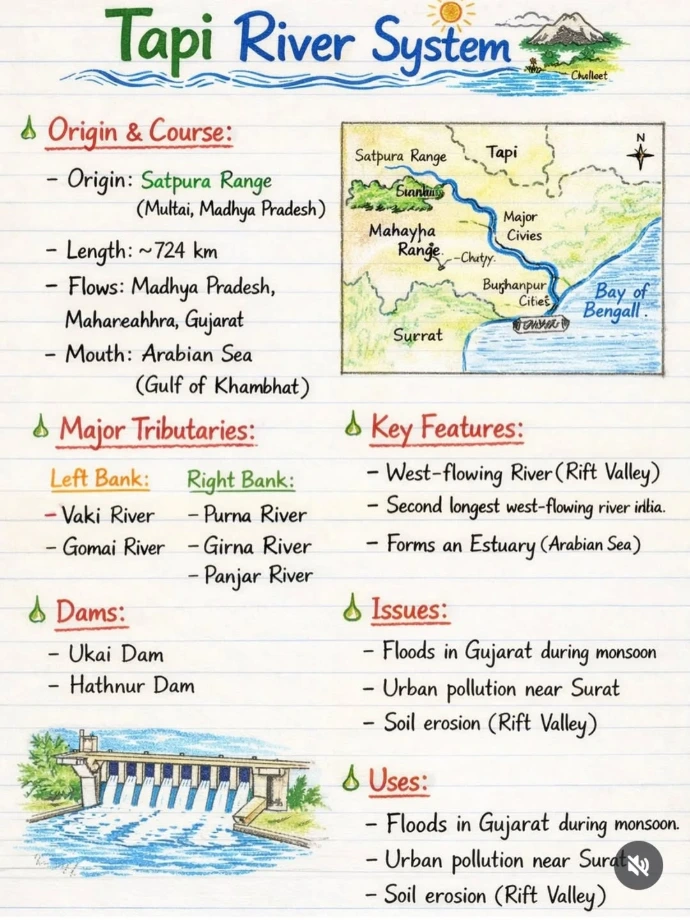 Tapi River System
Chelleet
Origin & Course:
– Origin: Satpura Range
(Multai, Madhya Pradesh)
– Length: ~724 km
– Flows: Madhya Pradesh,
Mahareahhra, Gujarat
– Mouth: Arabian Sea
(Gulf of Khambhat)
N
Satpura Range
Tapi
Mahayha
Range.
Major
Civies
Burhanpur
Cities
Bay of
Bengall.
Surrat
Major Tributaries:
Left Bank:
– Vaki River
– Gomai River
Right Bank:
– Purna River
– Girna River
– Panjar River
Key Features:
– West-flowing River (Rift Valley)
– Second longest west-flowing river
– Forms an Estuary (Arabian Sea)
Dams:
– Ukai Dam
– Hathnur Dam
Issues:
– Floods in Gujarat during monsoon
– Urban pollution near Surat
– Soil erosion (Rift Valley)
Uses:
– Floods in Gujarat during monsoon.
– Urban pollution near Surat
– Soil erosion (Rift Valley)